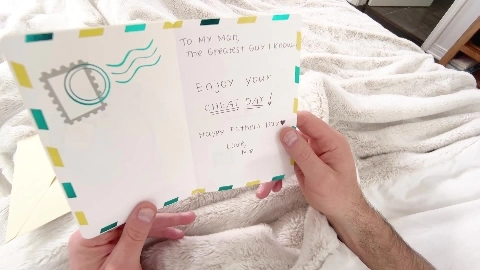 To My Man,
The Greatest Guy I Know
Enjoy Your
CHEAT DAY!
Happy Fathers Day
Love,